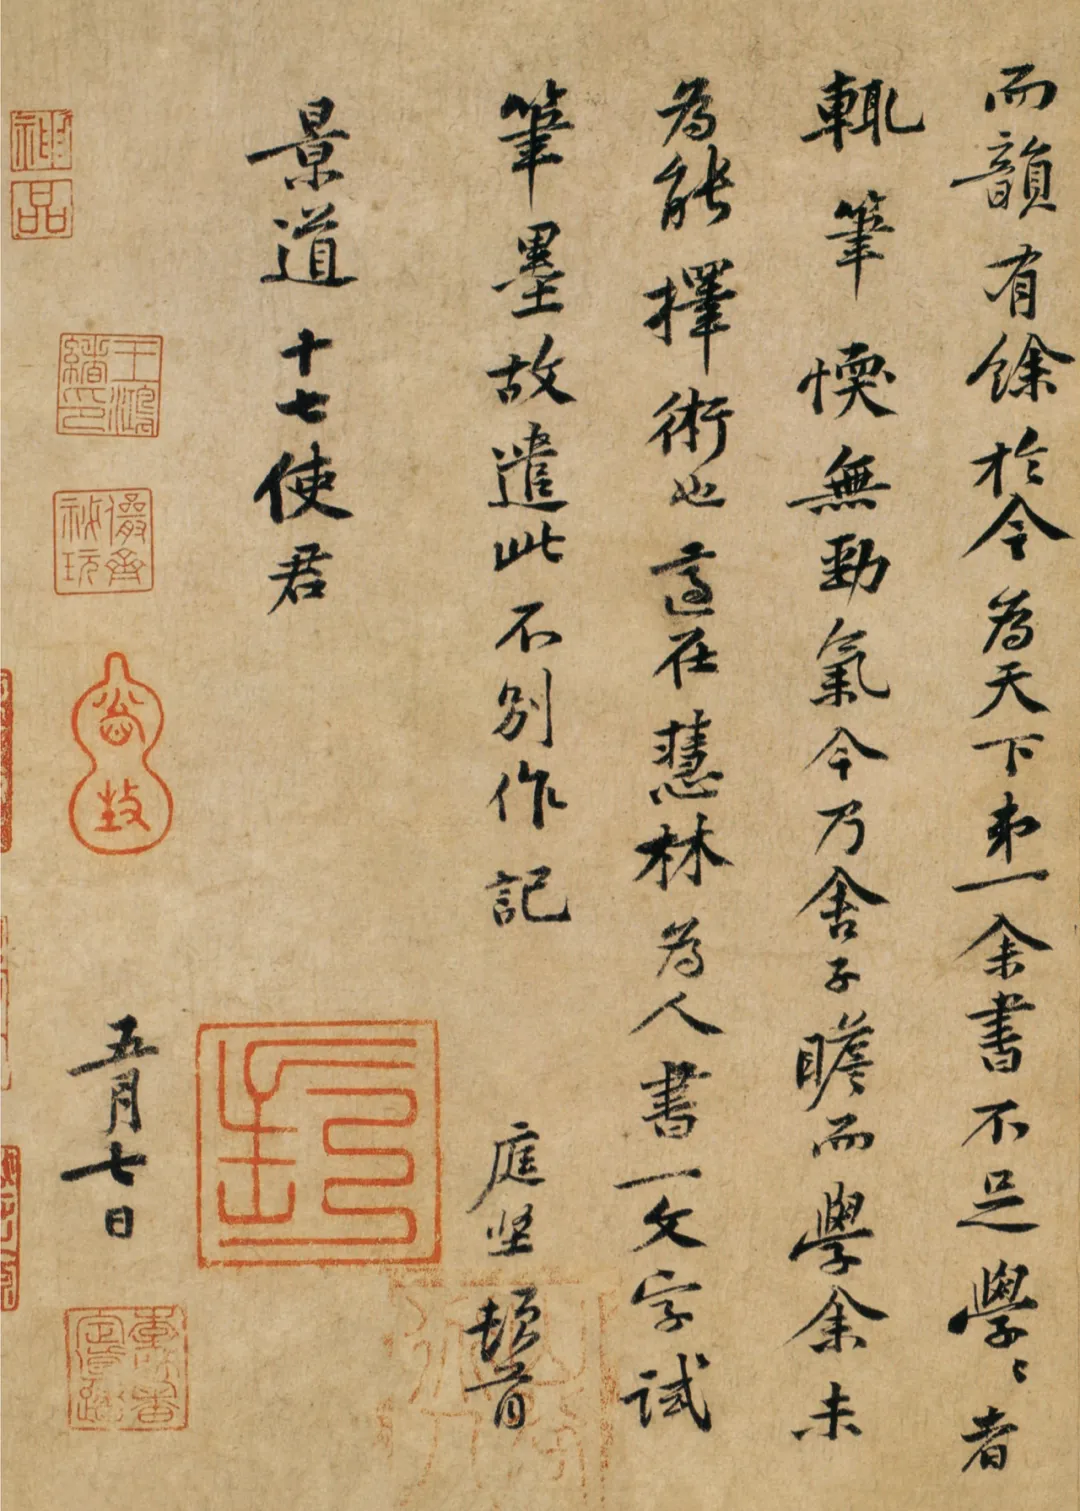 而韻有餘於今為天下苐一余書不足學〻者
輒筆愞無勁氣今乃舍子瞻而學余未
為能擇術也適在慧林為人書一文字試
筆墨故遣此不別作記 庭坚頓首
景道十七使君
五月七日
神品
王鴻緒印
儼齋祕玩